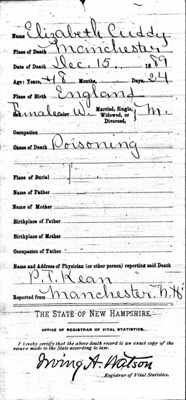 Name Elizabeth Cuddy
Place of Death Manchester
Date of Death Dec. 15. 1889
Age: Years, 48 Months, Days, 24
Place of Birth England
Female Color W. Married, Single, Widowed, or Divorced, M.
Occupation
Cause of Death Poisoning
Place of Burial
Name of Father
Name of Mother
Birthplace of Father
Birthplace of Mother
Occupation of Father
Name and Address of Physician (or other person) reporting said Death
P. T. Kean
Reported from Manchester N.H.
THE STATE OF NEW HAMPSHIRE.
OFFICE OF REGISTRAR OF VITAL STATISTICS.
I hereby certify that the above death record is an exact copy of the
return made to the State according to law.
Irving A. Watson
Registrar of Vital Statistics.